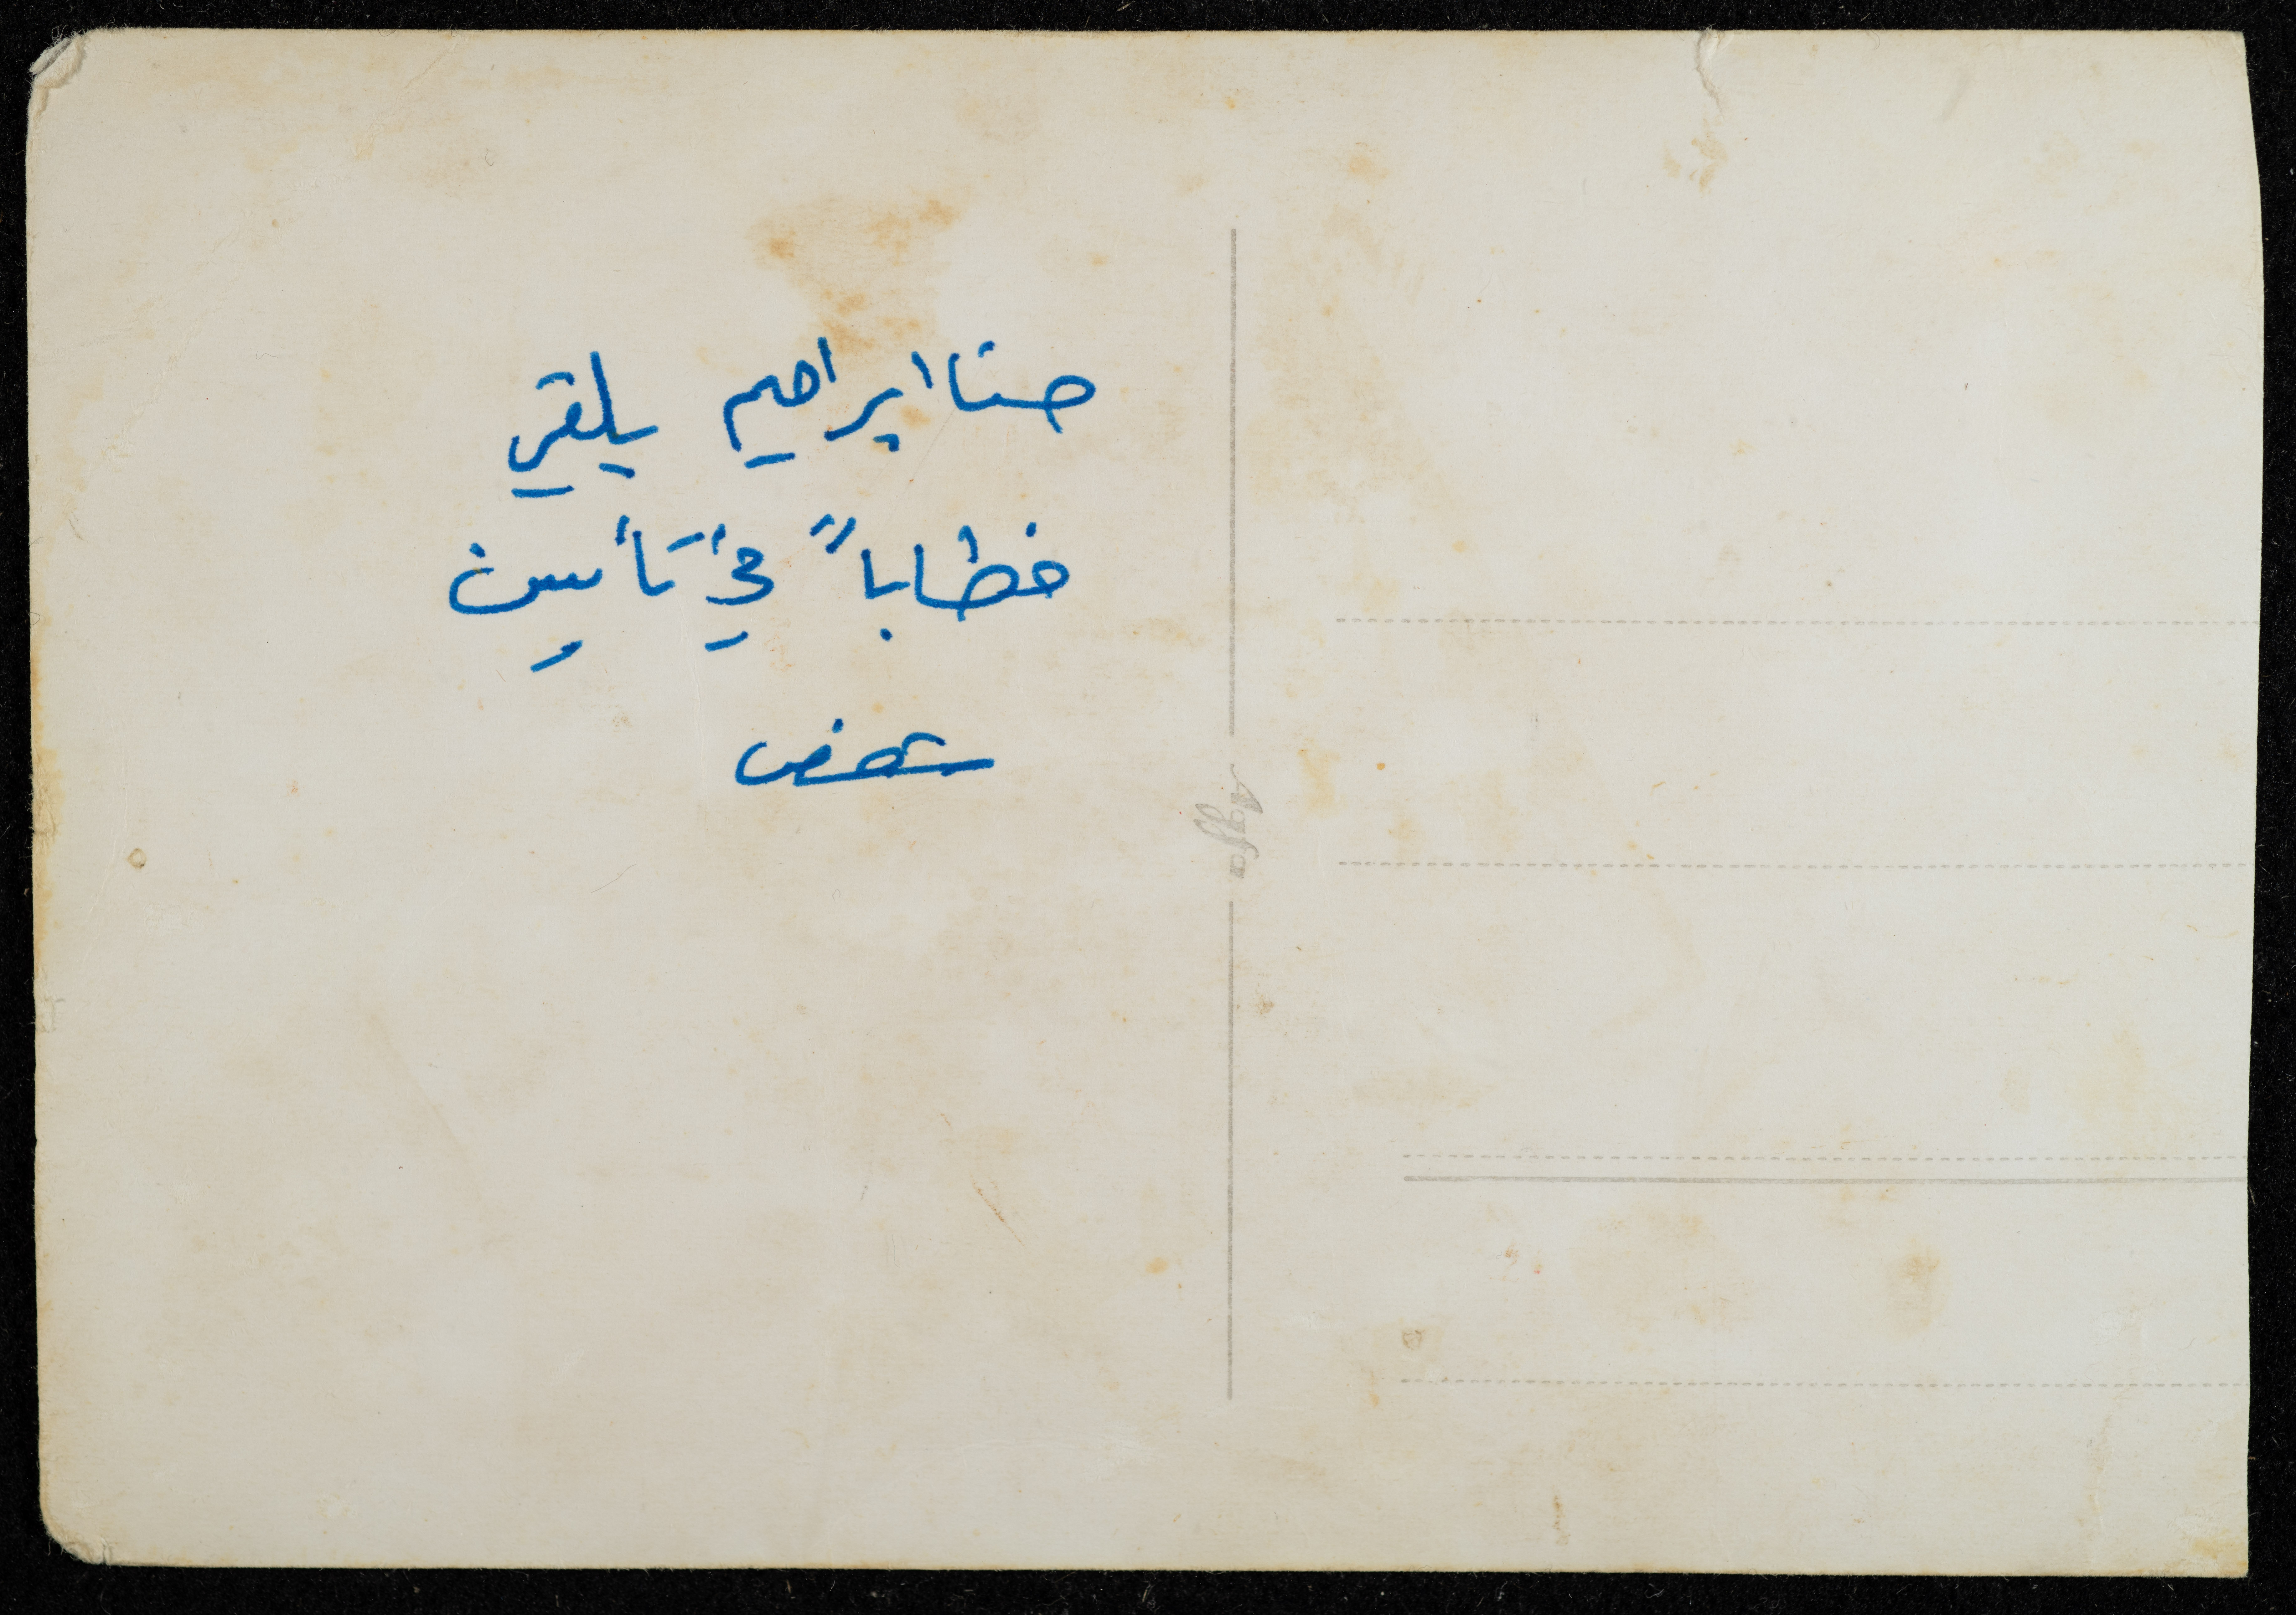 حنا ابراهيم يلقي
خطاباً في تأبين
شخص
Agfa